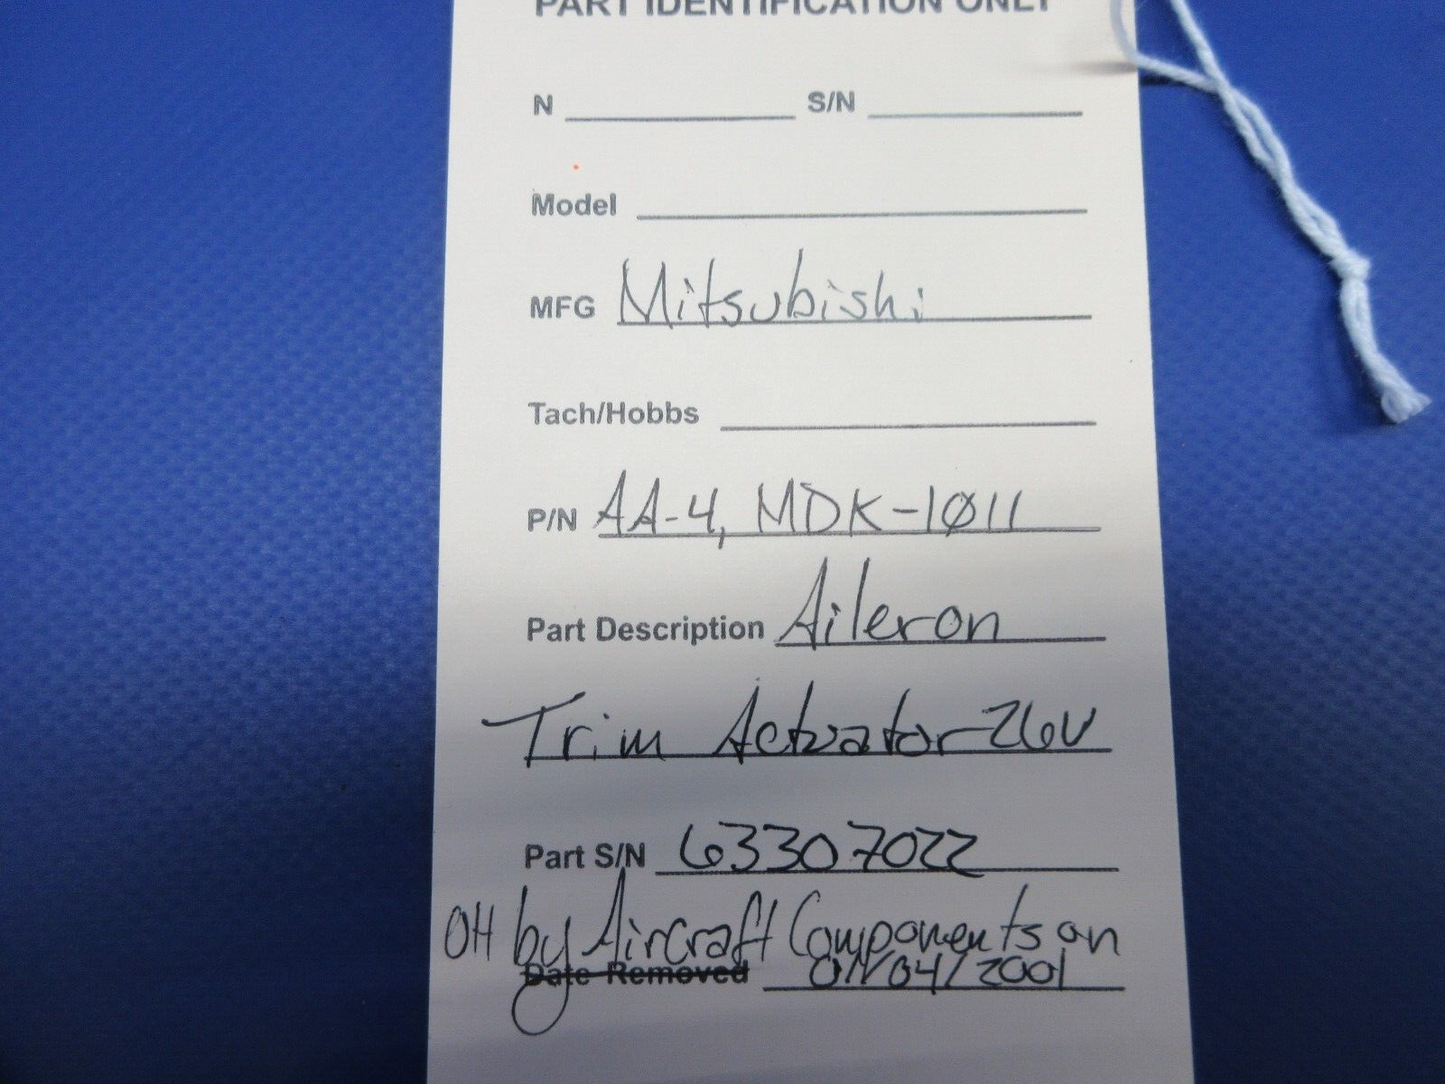 PART IDENTIFICATION ONLY
N S/N
Model
MFG Mitsubishi
Tach/Hobbs
P/N AA-4, MDK-1011
Part Description Aileron
Trim Actuator 26V
Part S/N 63307022
OH by Aircraft Components on
Date Removed 01/04/2001